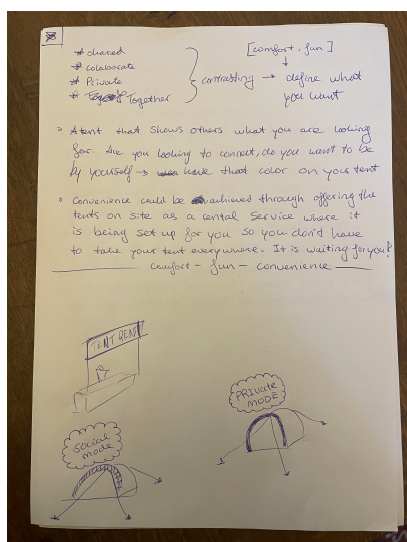 * shared
* colaborate
* Private
* Together
contrasting → define what you want
[comfort, fun]
◦ A tent that shows others what you are looking
for. Are you looking to connect, do you want to be
by yourself → have that color on your tent
◦ Convenience could be achieved through offering the
tents on site as a rental service where it
is being set up for you so you don't have
to take your tent everywhere. It is waiting for you!
comfort - fun - convenience
TENT RENT
PRIVATE
MODE
SOCIAL
mode